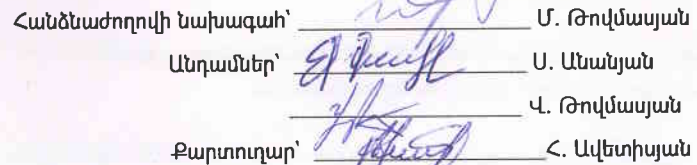 Հանձնաժողովի նախագահ՝ Մ. Թովմասյան
Անդամներ՝ Ս. Անանյան
Վ. Թովմասյան
Քարտուղար՝ Հ. Ավետիսյան